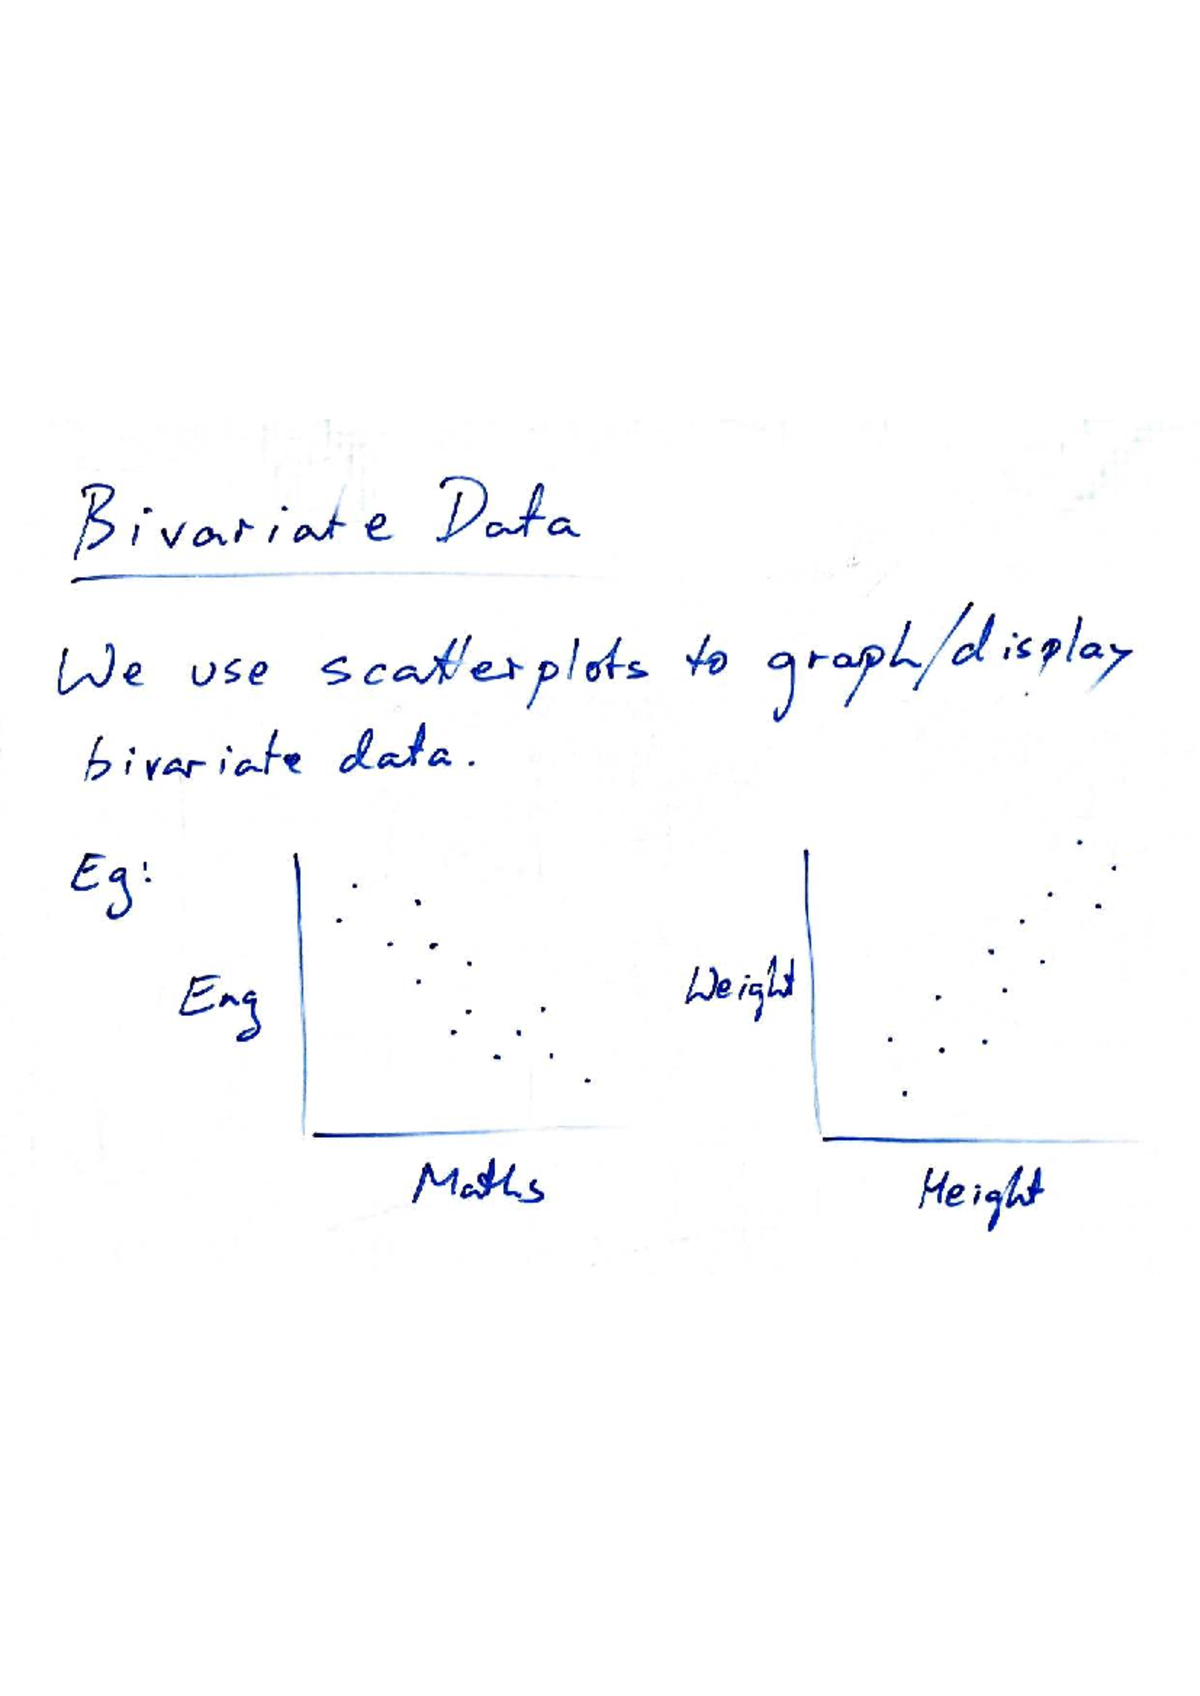 Bivariate Data
We use scatterplots to graph/display
bivariate data.
Eg:
Eng
Maths
Weight
Height